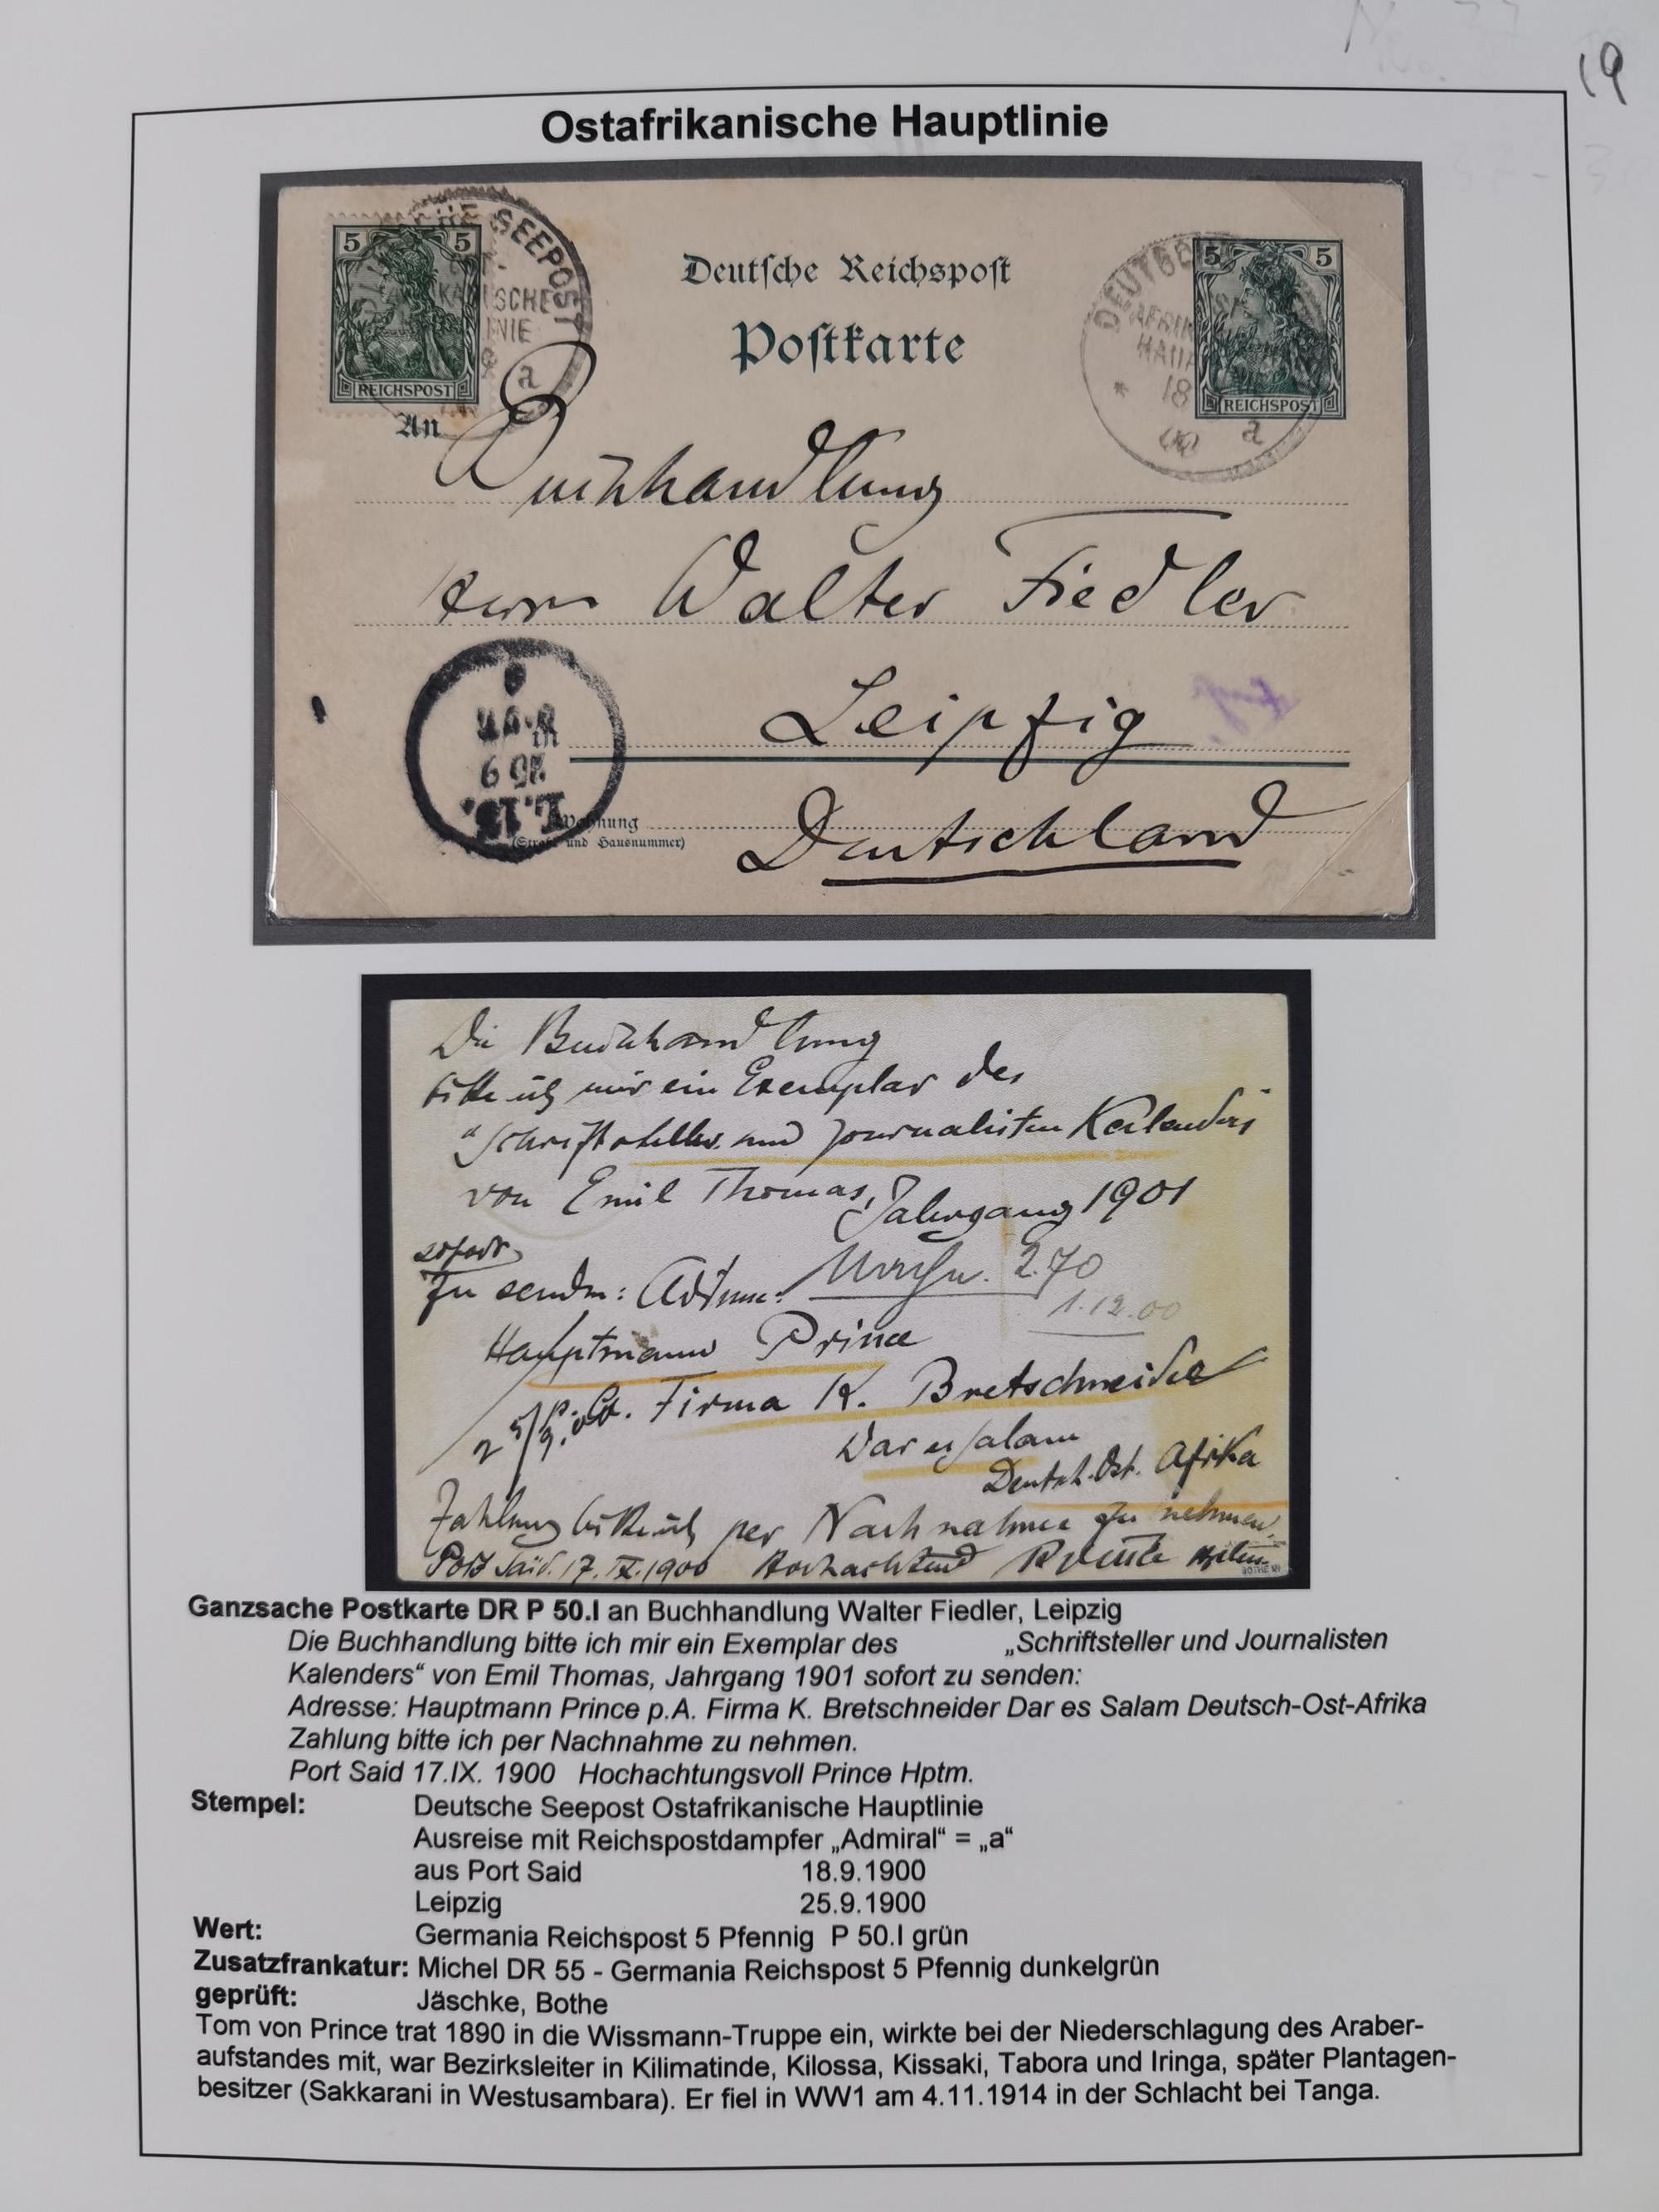 19
Ostafrikanische Hauptlinie
5 5
REICHSPOST
SEEPOST
a
Deutsche Reichspost
Postkarte
5 5
REICHSPOST
18
a
An
Buchhandlung
Herrn Walter Fiedler
Leipzig
Wohnung
(Straße und Hausnummer)
Deutschland
Die Buchhandlung
bitte ich mir ein Exemplar des
"Schriftsteller und Journalisten Kalenders
von Emil Thomas, Jahrgang 1901
sofort
zu senden: Adresse:
2.70
1.12.00
Hauptmann Prince
p. A. Firma K. Bretschneider
25/9.
Dar es salam
Deutsch. Ost. Afrika
Zahlung bitte ich per Nachnahme zu nehmen.
Port Said. 17. IX. 1900 Hochachtend Prince
Ganzsache Postkarte DR P 50.I an Buchhandlung Walter Fiedler, Leipzig
Die Buchhandlung bitte ich mir ein Exemplar des „Schriftsteller und Journalisten
Kalenders“ von Emil Thomas, Jahrgang 1901 sofort zu senden:
Adresse: Hauptmann Prince p.A. Firma K. Bretschneider Dar es Salam Deutsch-Ost-Afrika
Zahlung bitte ich per Nachnahme zu nehmen.
Port Said 17.IX. 1900 Hochachtungsvoll Prince Hptm.
Stempel: Deutsche Seepost Ostafrikanische Hauptlinie
Ausreise mit Reichspostdampfer „Admiral“ = „a“
aus Port Said 18.9.1900
Leipzig 25.9.1900
Wert: Germania Reichspost 5 Pfennig P 50.I grün
Zusatzfrankatur: Michel DR 55 - Germania Reichspost 5 Pfennig dunkelgrün
geprüft: Jäschke, Bothe
Tom von Prince trat 1890 in die Wissmann-Truppe ein, wirkte bei der Niederschlagung des Araber-
aufstandes mit, war Bezirksleiter in Kilimatinde, Kilossa, Kissaki, Tabora und Iringa, später Plantagen-
besitzer (Sakkarani in Westusambara). Er fiel in WW1 am 4.11.1914 in der Schlacht bei Tanga.